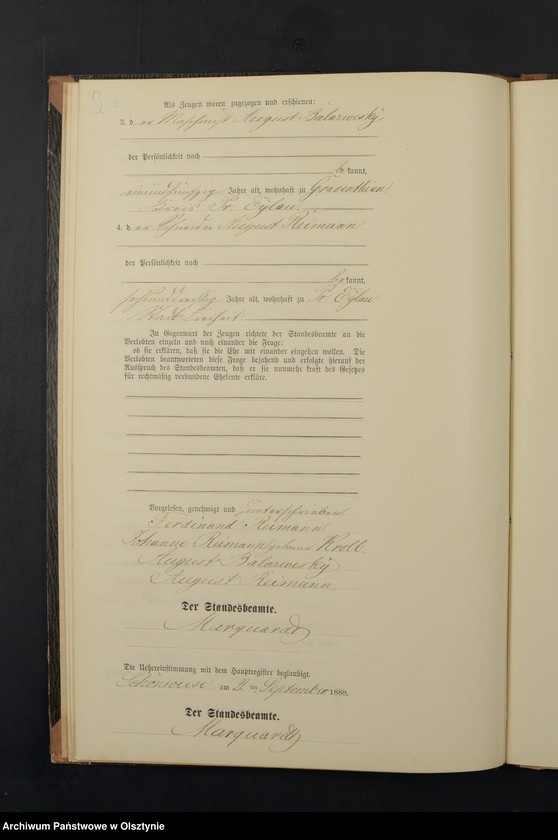 9.
Als Zeugen waren zugezogen und erschienen:
3. d er Maschinist August Balazwesky
der Persönlichkeit nach
be kannt,
einundfünfzig Jahre alt, wohnhaft zu Graventhien
Kreis Pr. Eylau
4. d er Schneider August Reimann
der Persönlichkeit nach
be kannt,
sechsunddreißig Jahre alt, wohnhaft zu Pr. Eylau
Stadt Freiheit
In Gegenwart der Zeugen richtete der Standesbeamte an die
Verlobten einzeln und nach einander die Frage:
ob sie erklären, daß sie die Ehe mit einander eingehen wollen. Die
Verlobten beantworteten diese Frage bejahend und erfolgte hierauf der
Ausspruch des Standesbeamten, daß er sie nunmehr kraft des Gesetzes
für rechtmäßig verbundene Eheleute erkläre.
Vorgelesen, genehmigt und unterschrieben
Ferdinand Reimann
Johanne Reimann geborene Kroll.
August Balazwesky
August Reimann.
Der Standesbeamte.
Marquardt
Die Uebereinstimmung mit dem Hauptregister beglaubigt.
Schönwiese am 2 ten September 1888.
Der Standesbeamte.
Marquardt
Archiwum Państwowe w Olsztynie